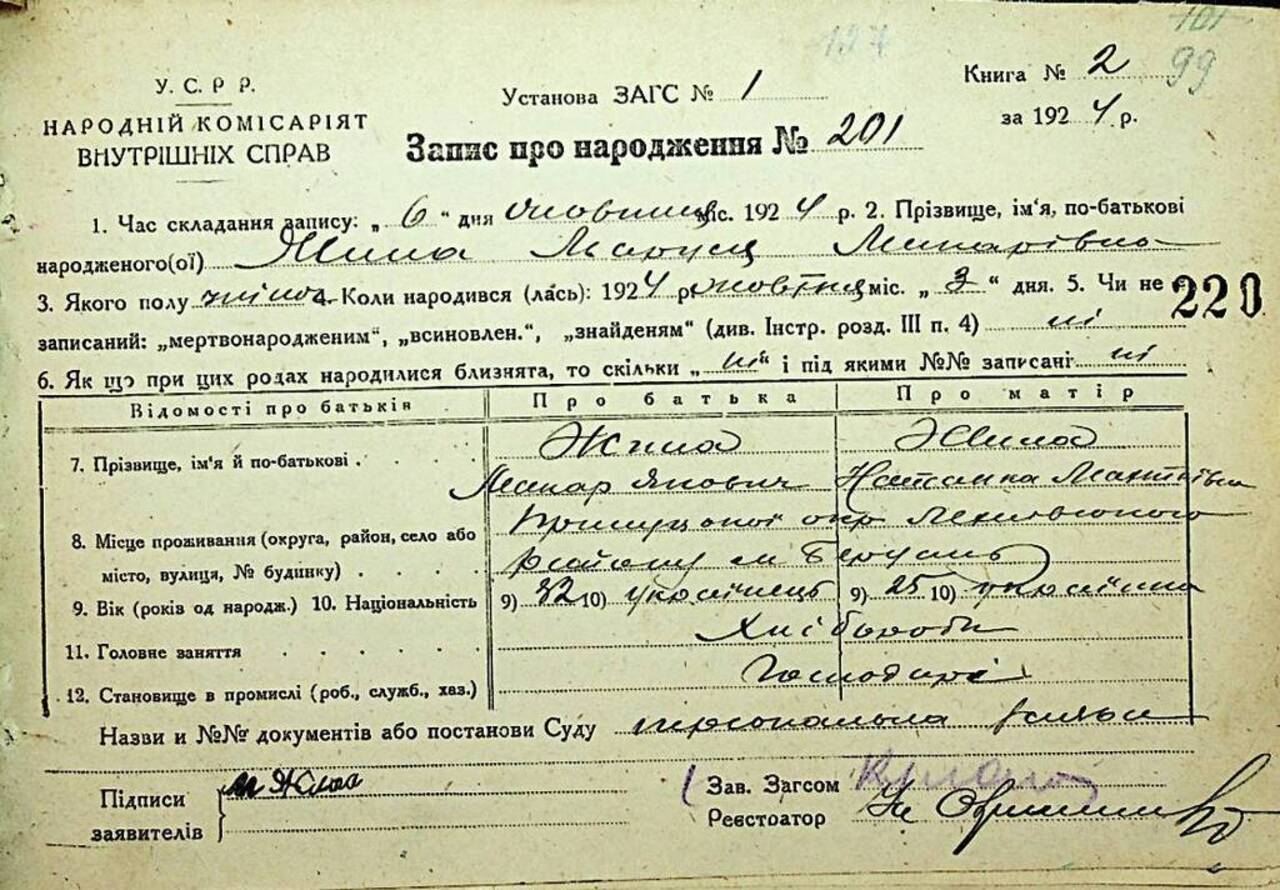 101
99
127
У. С. Р Р.
НАРОДНІЙ КОМІСАРІЯТ
ВНУТРІШНІХ СПРАВ
Установа ЗАГС № 1
Книга № 2
за 1924 р.
Запис про народження № 201
1. Час складання запису: „ 6 “ дня Жовтня міс. 1924 р. 2. Прізвище, ім'я, по-батькові
народженого(ої) Жила Маруся Макарівна
3. Якого полу жіноч 4. Коли народився (лась): 1924 р. жовтня міс. „ 3 “ дня. 5. Чи не
220
записаний: „мертвонародженим“, „всиновлен.“, „знайденям“ (див. Інстр. розд. III п. 4) ні
6. Як що при цих родах народилися близнята, то скільки „ ні “ і під якими №№ записані ні
Відомості про батьків Про батька Про матір
7. Прізвище, ім'я й по-батькові . . . . Жила Жила
Макар Якович Наталка
8. Місце проживання (округа, район, село або Прилуцької окр
місто, вулиця, № будинку) . . . . району м
9. Вік (років од народж.) 10. Національність 9) 32 10) українець 9) 25 10) українка
11. Головне заняття . . . . . . Хлібороби
12. Становище в промислі (роб., служб., хаз.) Господарі
Назви и №№ документів або постанови Суду персональна
Підписи
заявителів
М Жила
Зав. Загсом
Реєстоатор